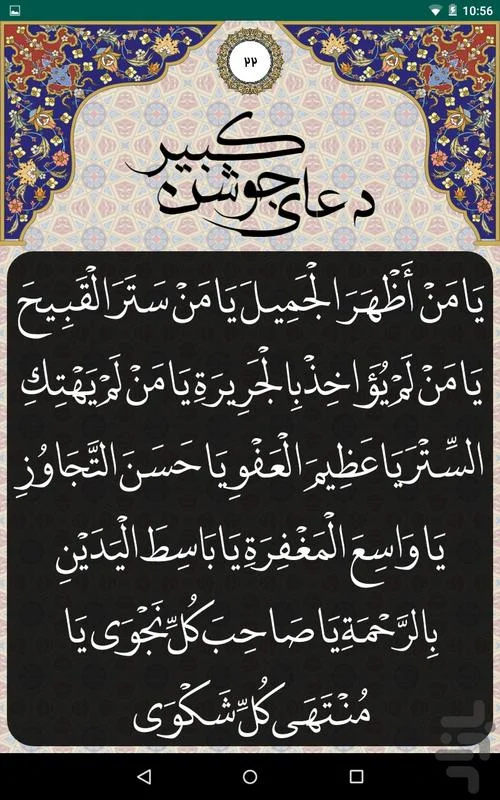 10:56
۲۲
دعای جوشن کبیر
يَا مَنْ أَظْهَرَ الْجَمِيلَ يَا مَنْ سَتَرَ الْقَبِيحَ
يَا مَنْ لَمْ يُؤَاخِذْ بِالْجَرِيرَةِ يَا مَنْ لَمْ يَهْتِكِ
السِّتْرَ يَا عَظِيمَ الْعَفْوِ يَا حَسَنَ التَّجَاوُزِ
يَا وَاسِعَ الْمَغْفِرَةِ يَا بَاسِطَ الْيَدَيْنِ
بِالرَّحْمَةِ يَا صَاحِبَ كُلِّ نَجْوَى يَا
مُنْتَهَى كُلِّ شَكْوَى
بازار